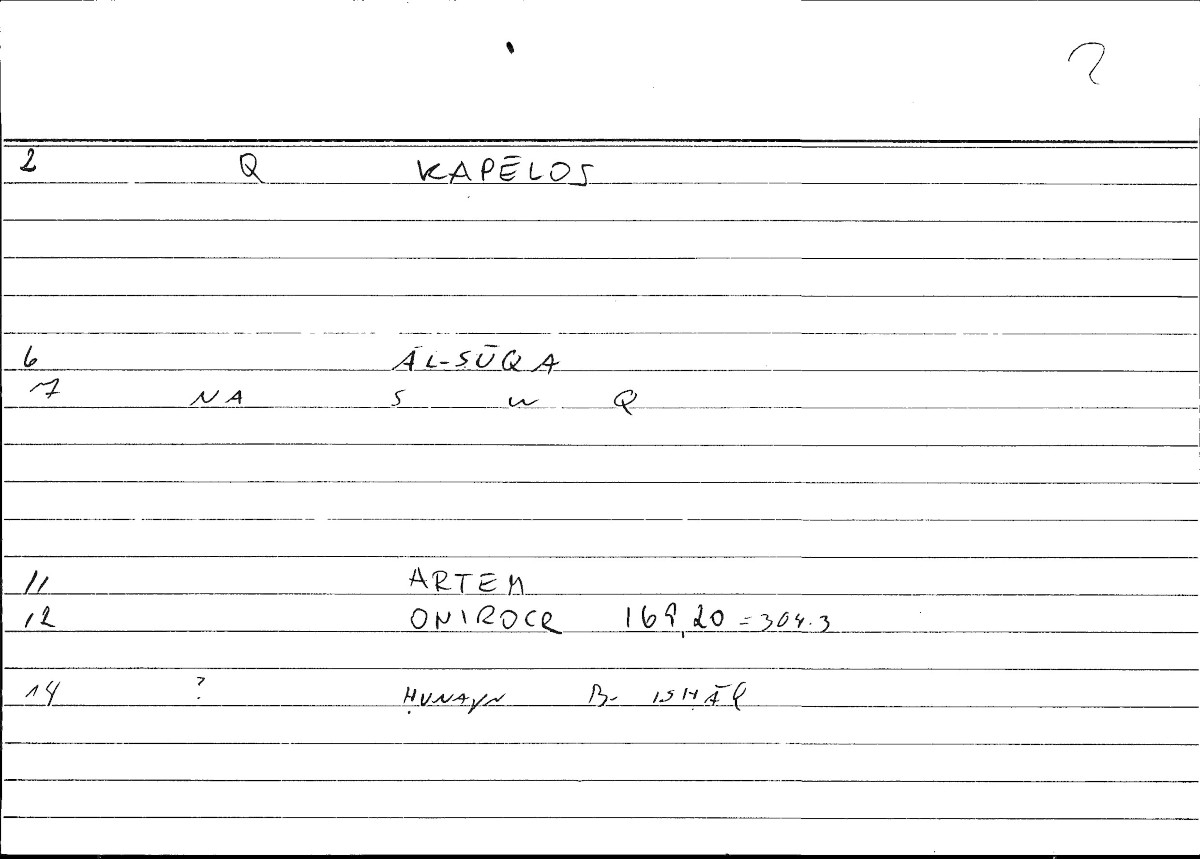 ?
2 Q KAPĒLOS
6 ĀL-SŪQA
7 NA S W Q
11 ARTEM
12 ONIROCR 169,20 = 304.3
14 ? ḤUNAYN B- ISḤĀQ